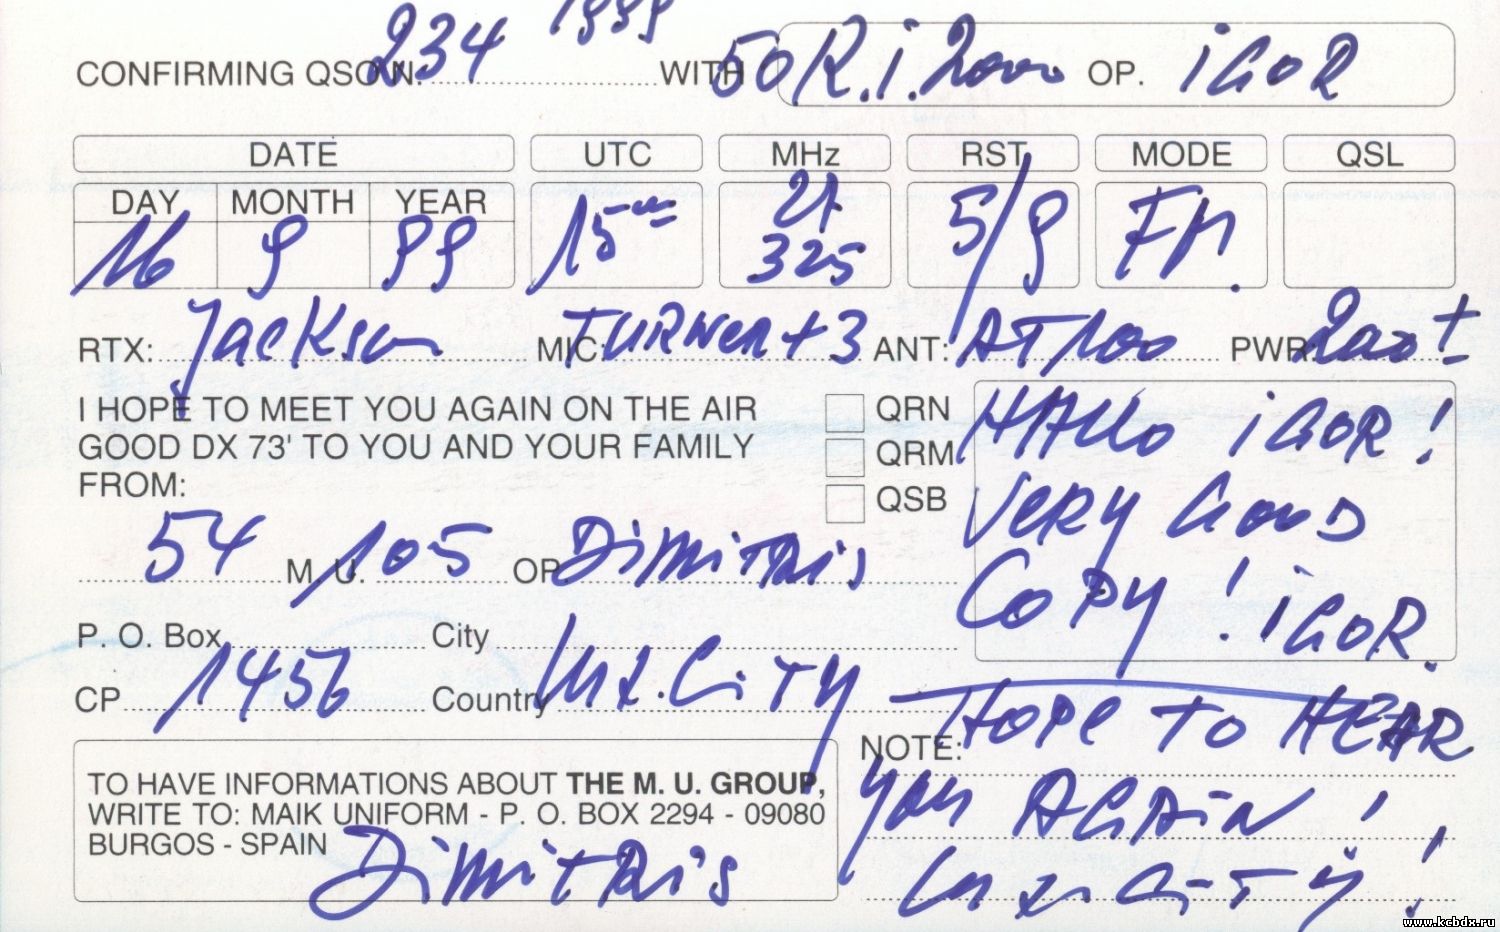 1999
CONFIRMING QSO N. 234 WITH 50R.i.2000 OP. iGOR
DATE UTC MHz RST MODE QSL
DAY MONTH YEAR
16 9 99 15 21 325 5/9 FM.
RTX: Jackson MIC: TURNER+3 ANT: AT100 PWR: 200±
I HOPE TO MEET YOU AGAIN ON THE AIR
GOOD DX 73' TO YOU AND YOUR FAMILY
FROM:
QRN
QRM
QSB
HALLO iGOR!
VERY GOOD
COPY! iGOR.
54 M.U. 105 OP. DiMiTRis
P. O. Box City
CP 1456 Country City
NOTE: HOPE TO HEAR
you AGAiN!
TO HAVE INFORMATIONS ABOUT THE M. U. GROUP,
WRITE TO: MAIK UNIFORM - P. O. BOX 2294 - 09080
BURGOS - SPAIN
DiMiTRi's
www.kcbdx.ru